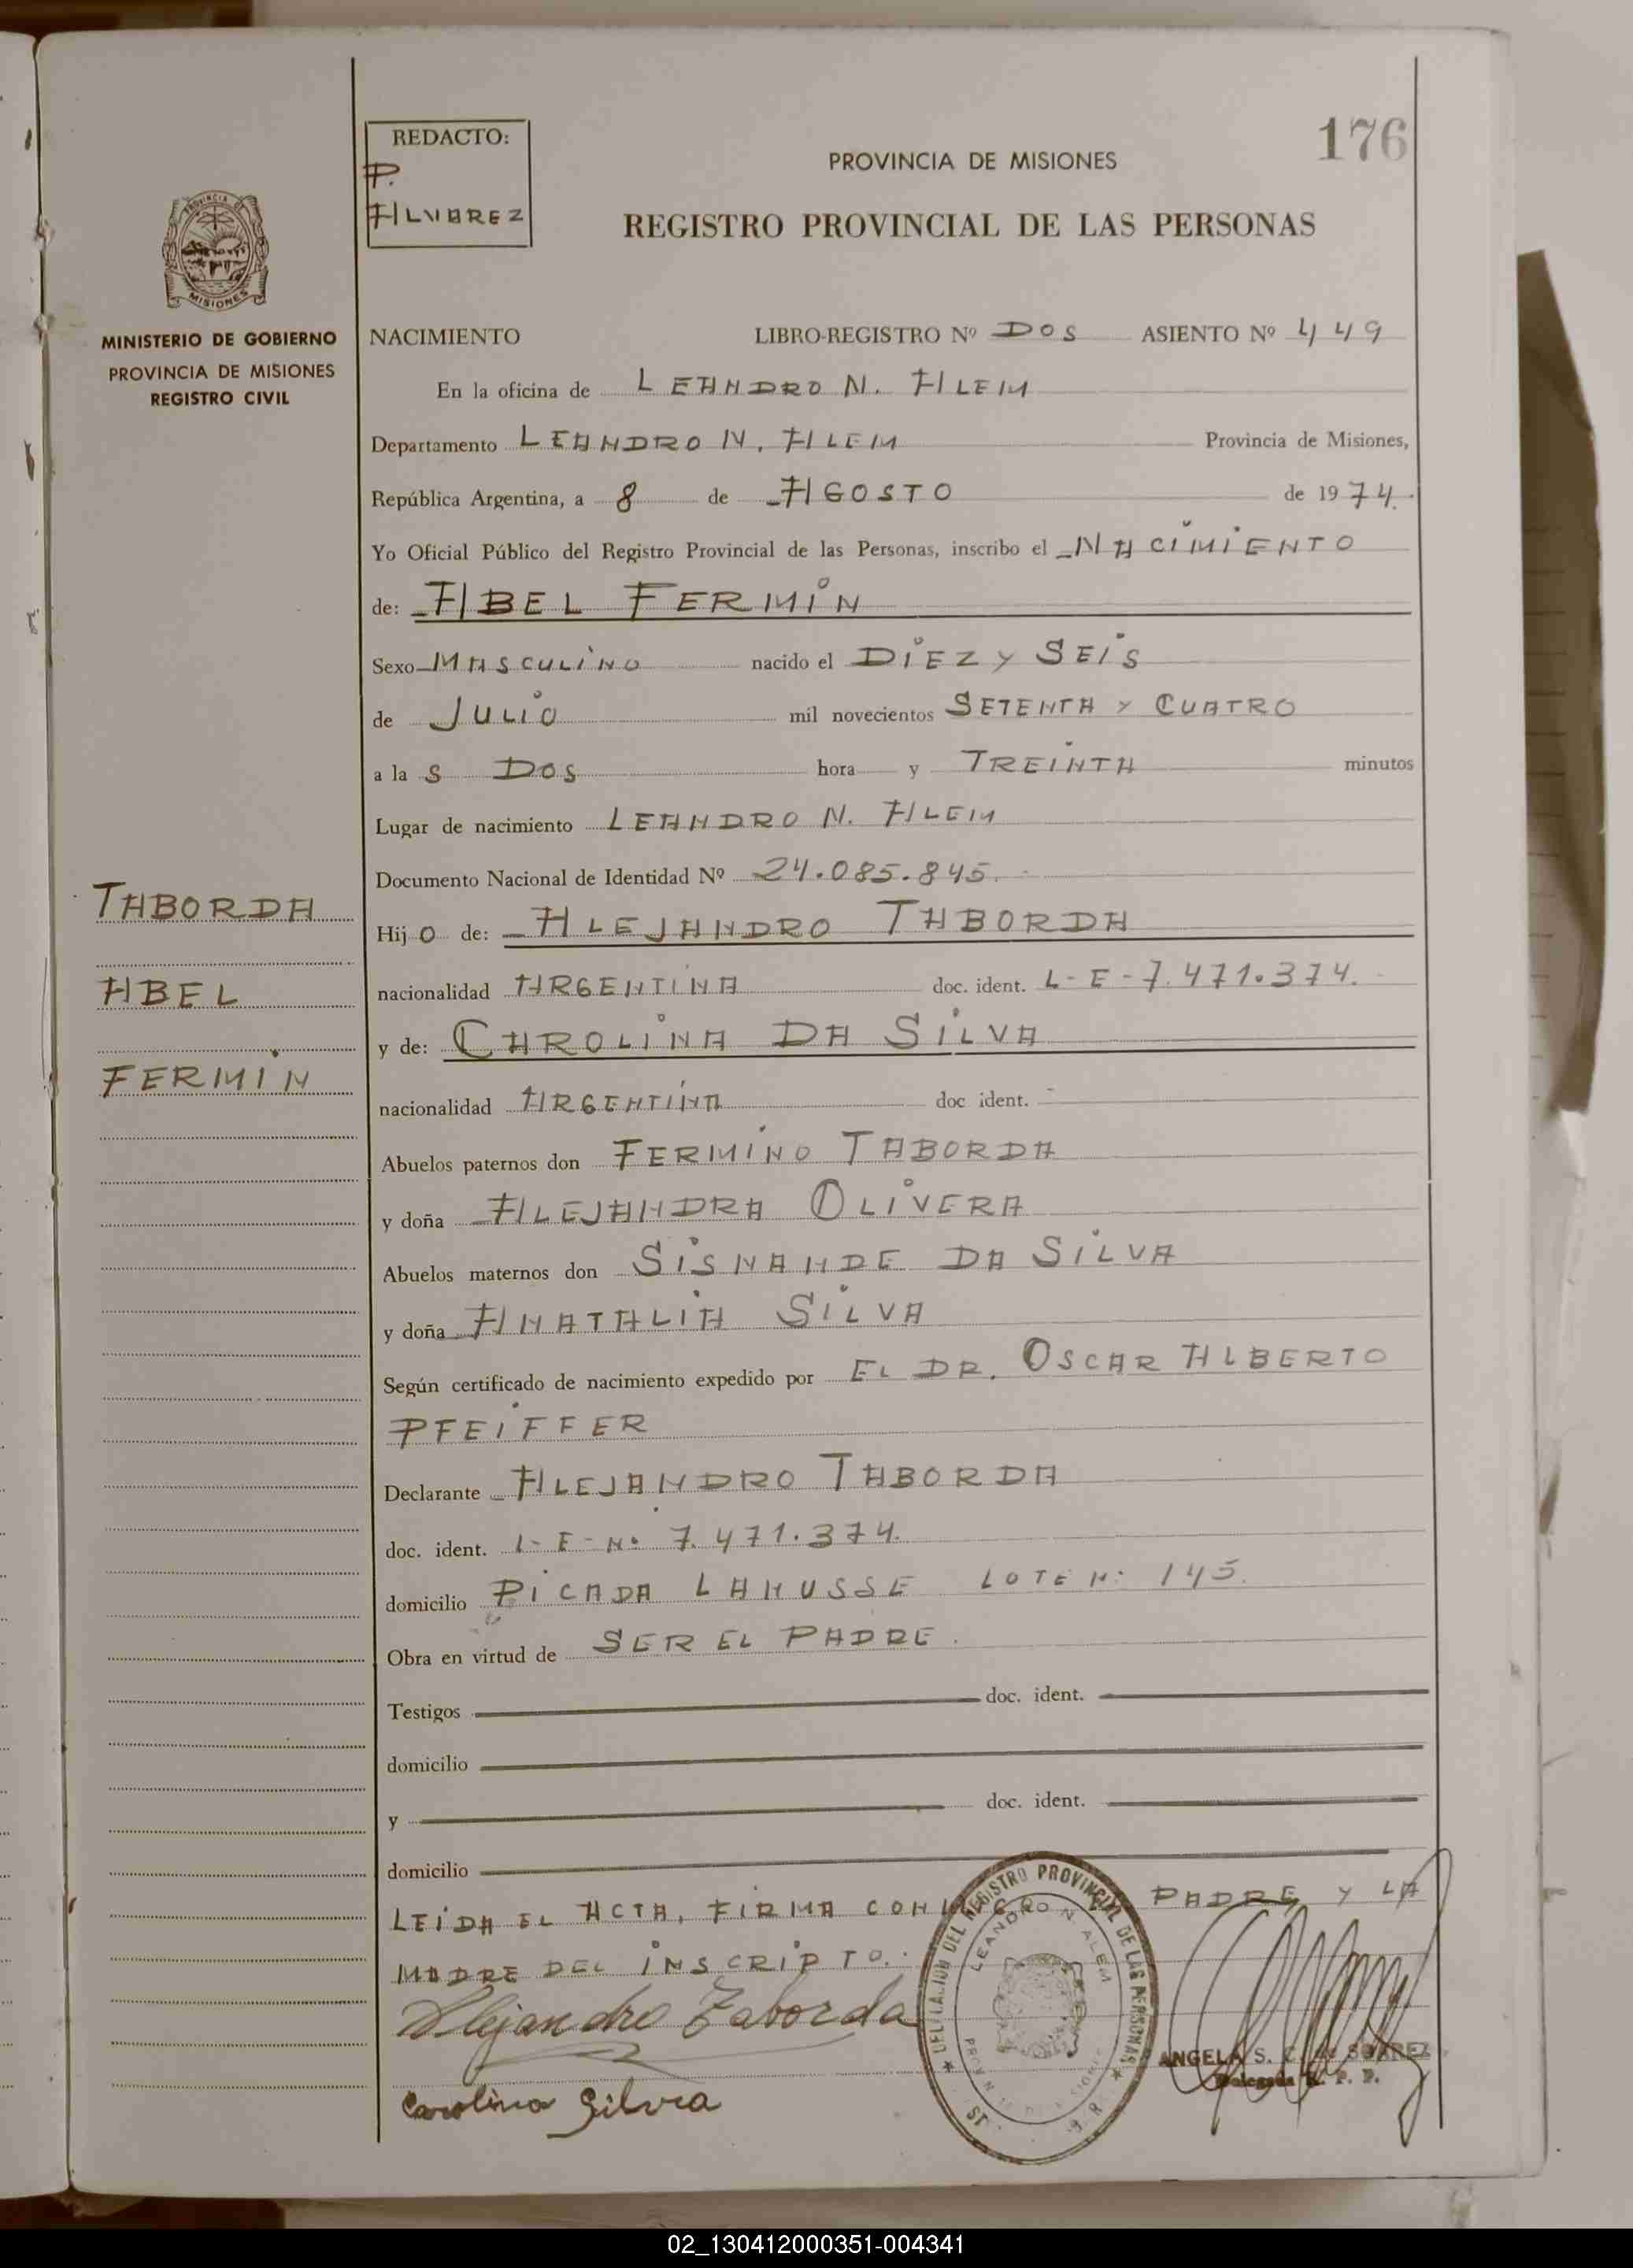 176
REDACTO:
P.
ALVAREZ
PROVINCIA DE MISIONES
REGISTRO PROVINCIAL DE LAS PERSONAS
PROVINCIA DE
MISIONES
MINISTERIO DE GOBIERNO
PROVINCIA DE MISIONES
REGISTRO CIVIL
NACIMIENTO LIBRO-REGISTRO Nº DOS ASIENTO Nº 449
En la oficina de LEANDRO N. ALEM
Departamento LEANDRO N. ALEM Provincia de Misiones,
República Argentina, a 8 de AGOSTO de 1974.
Yo Oficial Público del Registro Provincial de las Personas, inscribo el NACIMIENTO
de: ABEL FERMIN
Sexo MASCULINO nacido el DIEZ Y SEIS
de JULIO mil novecientos SETENTA Y CUATRO
a la S DOS hora y TREINTA minutos
Lugar de nacimiento LEANDRO N. ALEM
Documento Nacional de Identidad Nº 24.085.845.
TABORDA
ABEL
FERMIN
Hij O de: ALEJANDRO TABORDA
nacionalidad ARGENTINA doc. ident. L-E-7.471.374.
y de: CAROLINA DA SILVA
nacionalidad ARGENTINA doc ident.
Abuelos paternos don FERMINO TABORDA
y doña ALEJANDRA OLIVERA
Abuelos maternos don SISNANDE DA SILVA
y doña ANATALIA SILVA
Según certificado de nacimiento expedido por EL DR. OSCAR ALBERTO
PFEIFFER
Declarante ALEJANDRO TABORDA
doc. ident. L-E-Nº 7.471.374.
domicilio PICADA LANUSSE LOTE N: 145.
Obra en virtud de SER EL PADRE.
Testigos doc. ident.
domicilio
y doc. ident.
domicilio
LEIDA EL ACTA, FIRMA CONMIGO EL PADRE Y LA
MADRE DEL INSCRIPTO.
Alejandro Taborda
Carolina Silvia
DELEGACION DEL REGISTRO PROVINCIAL DE LAS PERSONAS
LEANDRO N. ALEM
ANGELA S. C. de SUAREZ
Delegada R. P. P.
02_130412000351-004341